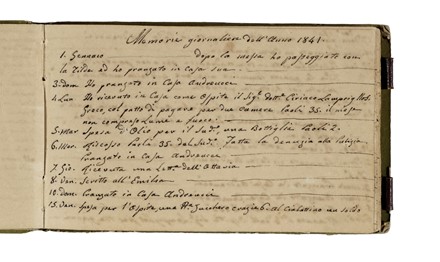 Memorie giornaliere dell'Anno 1841.
1. Gennaro dopo la messa ho passeggiato con
la Tilde ed ho pranzato in Casa sua
3. Dom Ho pranzato in Casa Andreucci
4. Lun. Ho ricevuto in Casa come Ospite il Sig.r Dott.r Ciriaco
Greco col patto di pagare per due Camere paoli 35. il mese
non compreso Lume e fuoco.
5. Mar Spesa d'Olio per il Sud.o, una Bottiglia paoli 2.
6. Mer. Riscossi paoli 35. dal Sud.o Fatta la denunzia alla Polizia
Pranzato in Casa Andreucci
7. Gio. Ricevuta una Lett.a dell'Ottavia
8. Ven. Scritto all'Emilia
10. Dom. Pranzato in Casa Andreucci
15. Ven. Spesa per l'Ospite, una Zucchero crazie 6 del un soldo